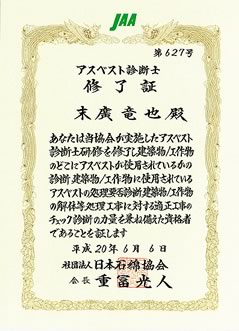 JAA
第627号
アスベスト診断士
修了証
末廣竜也殿
あなたは当協会が実施したアスベスト
診断士研修を修了し建築物/工作物
のどこにアスベストが使用されているかの
診断、建築物/工作物に使用されている
アスベストの処理要否診断、建築物/工作物
の解体等処理工事に対する適正工事の
チェック診断の力量を兼ね備えた資格者
であることを証します
平成20年6月6日
社団法人日本石綿協会
会長 重冨光人